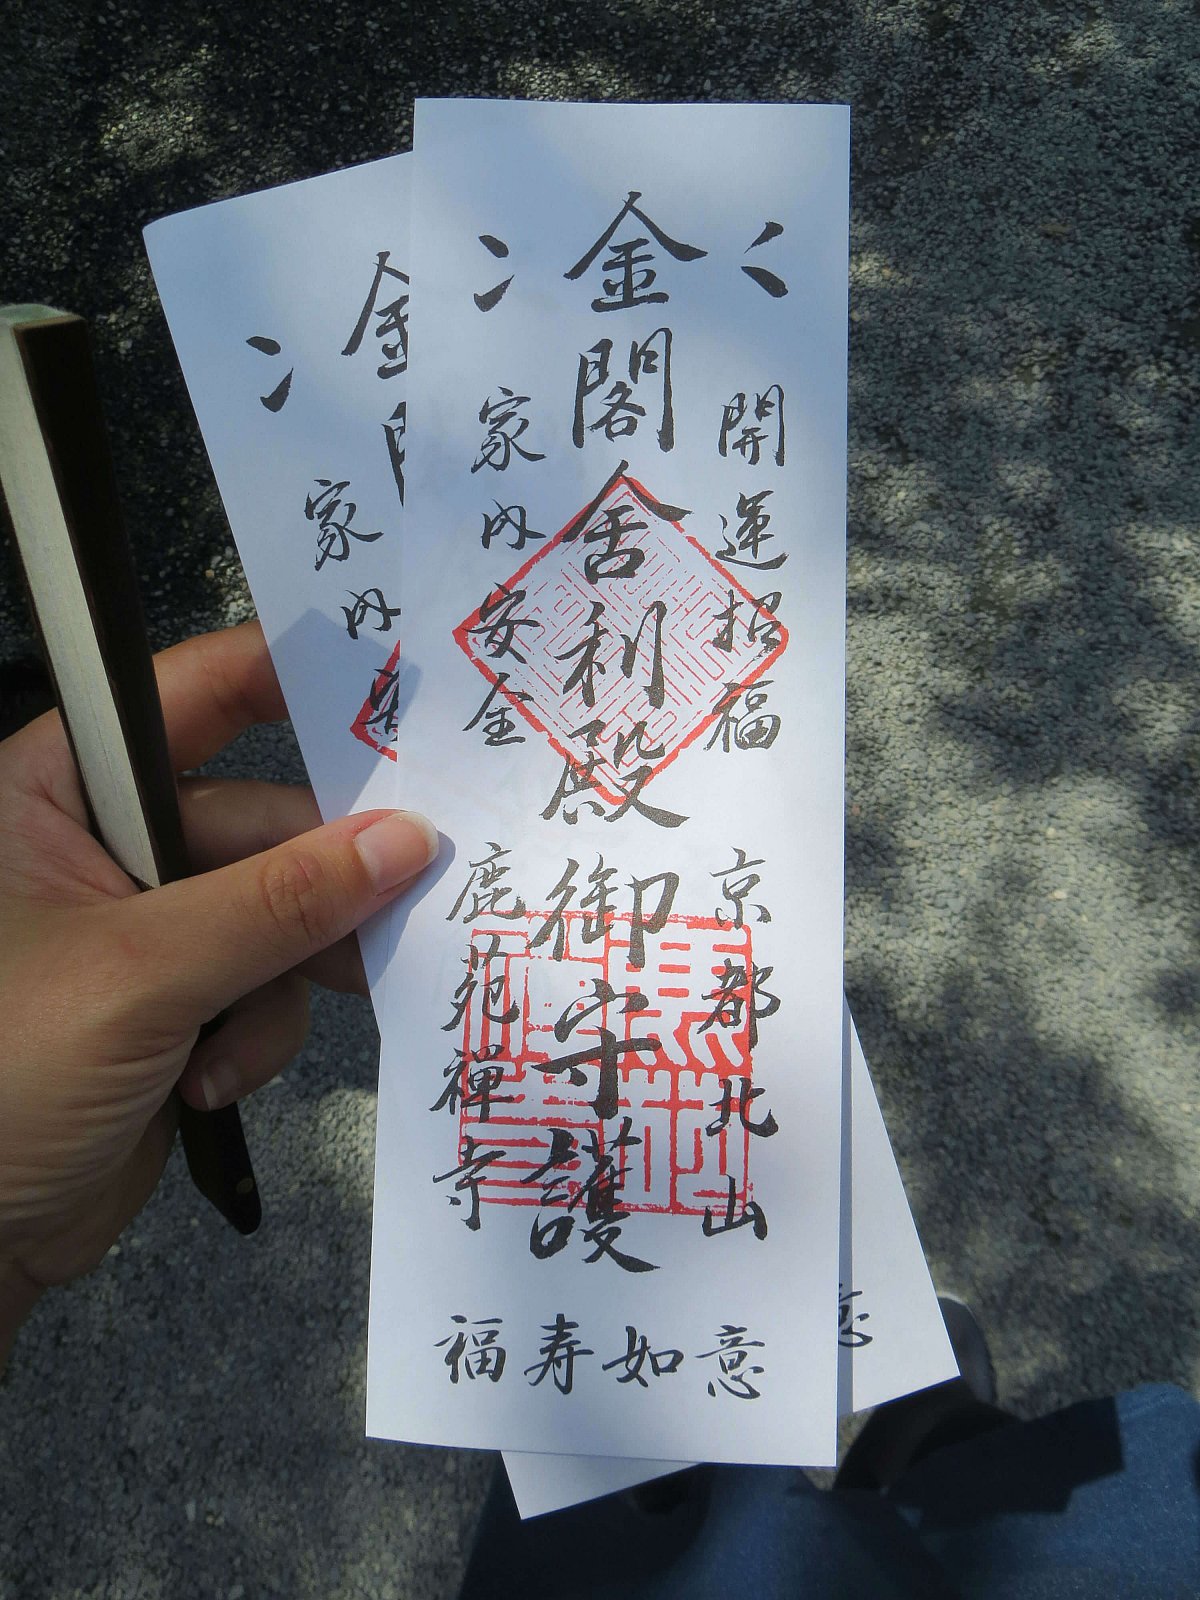 開運招福
京都北山
金閣舍利殿御守護
家内安全
鹿苑禅寺
福寿如意
家内安
意